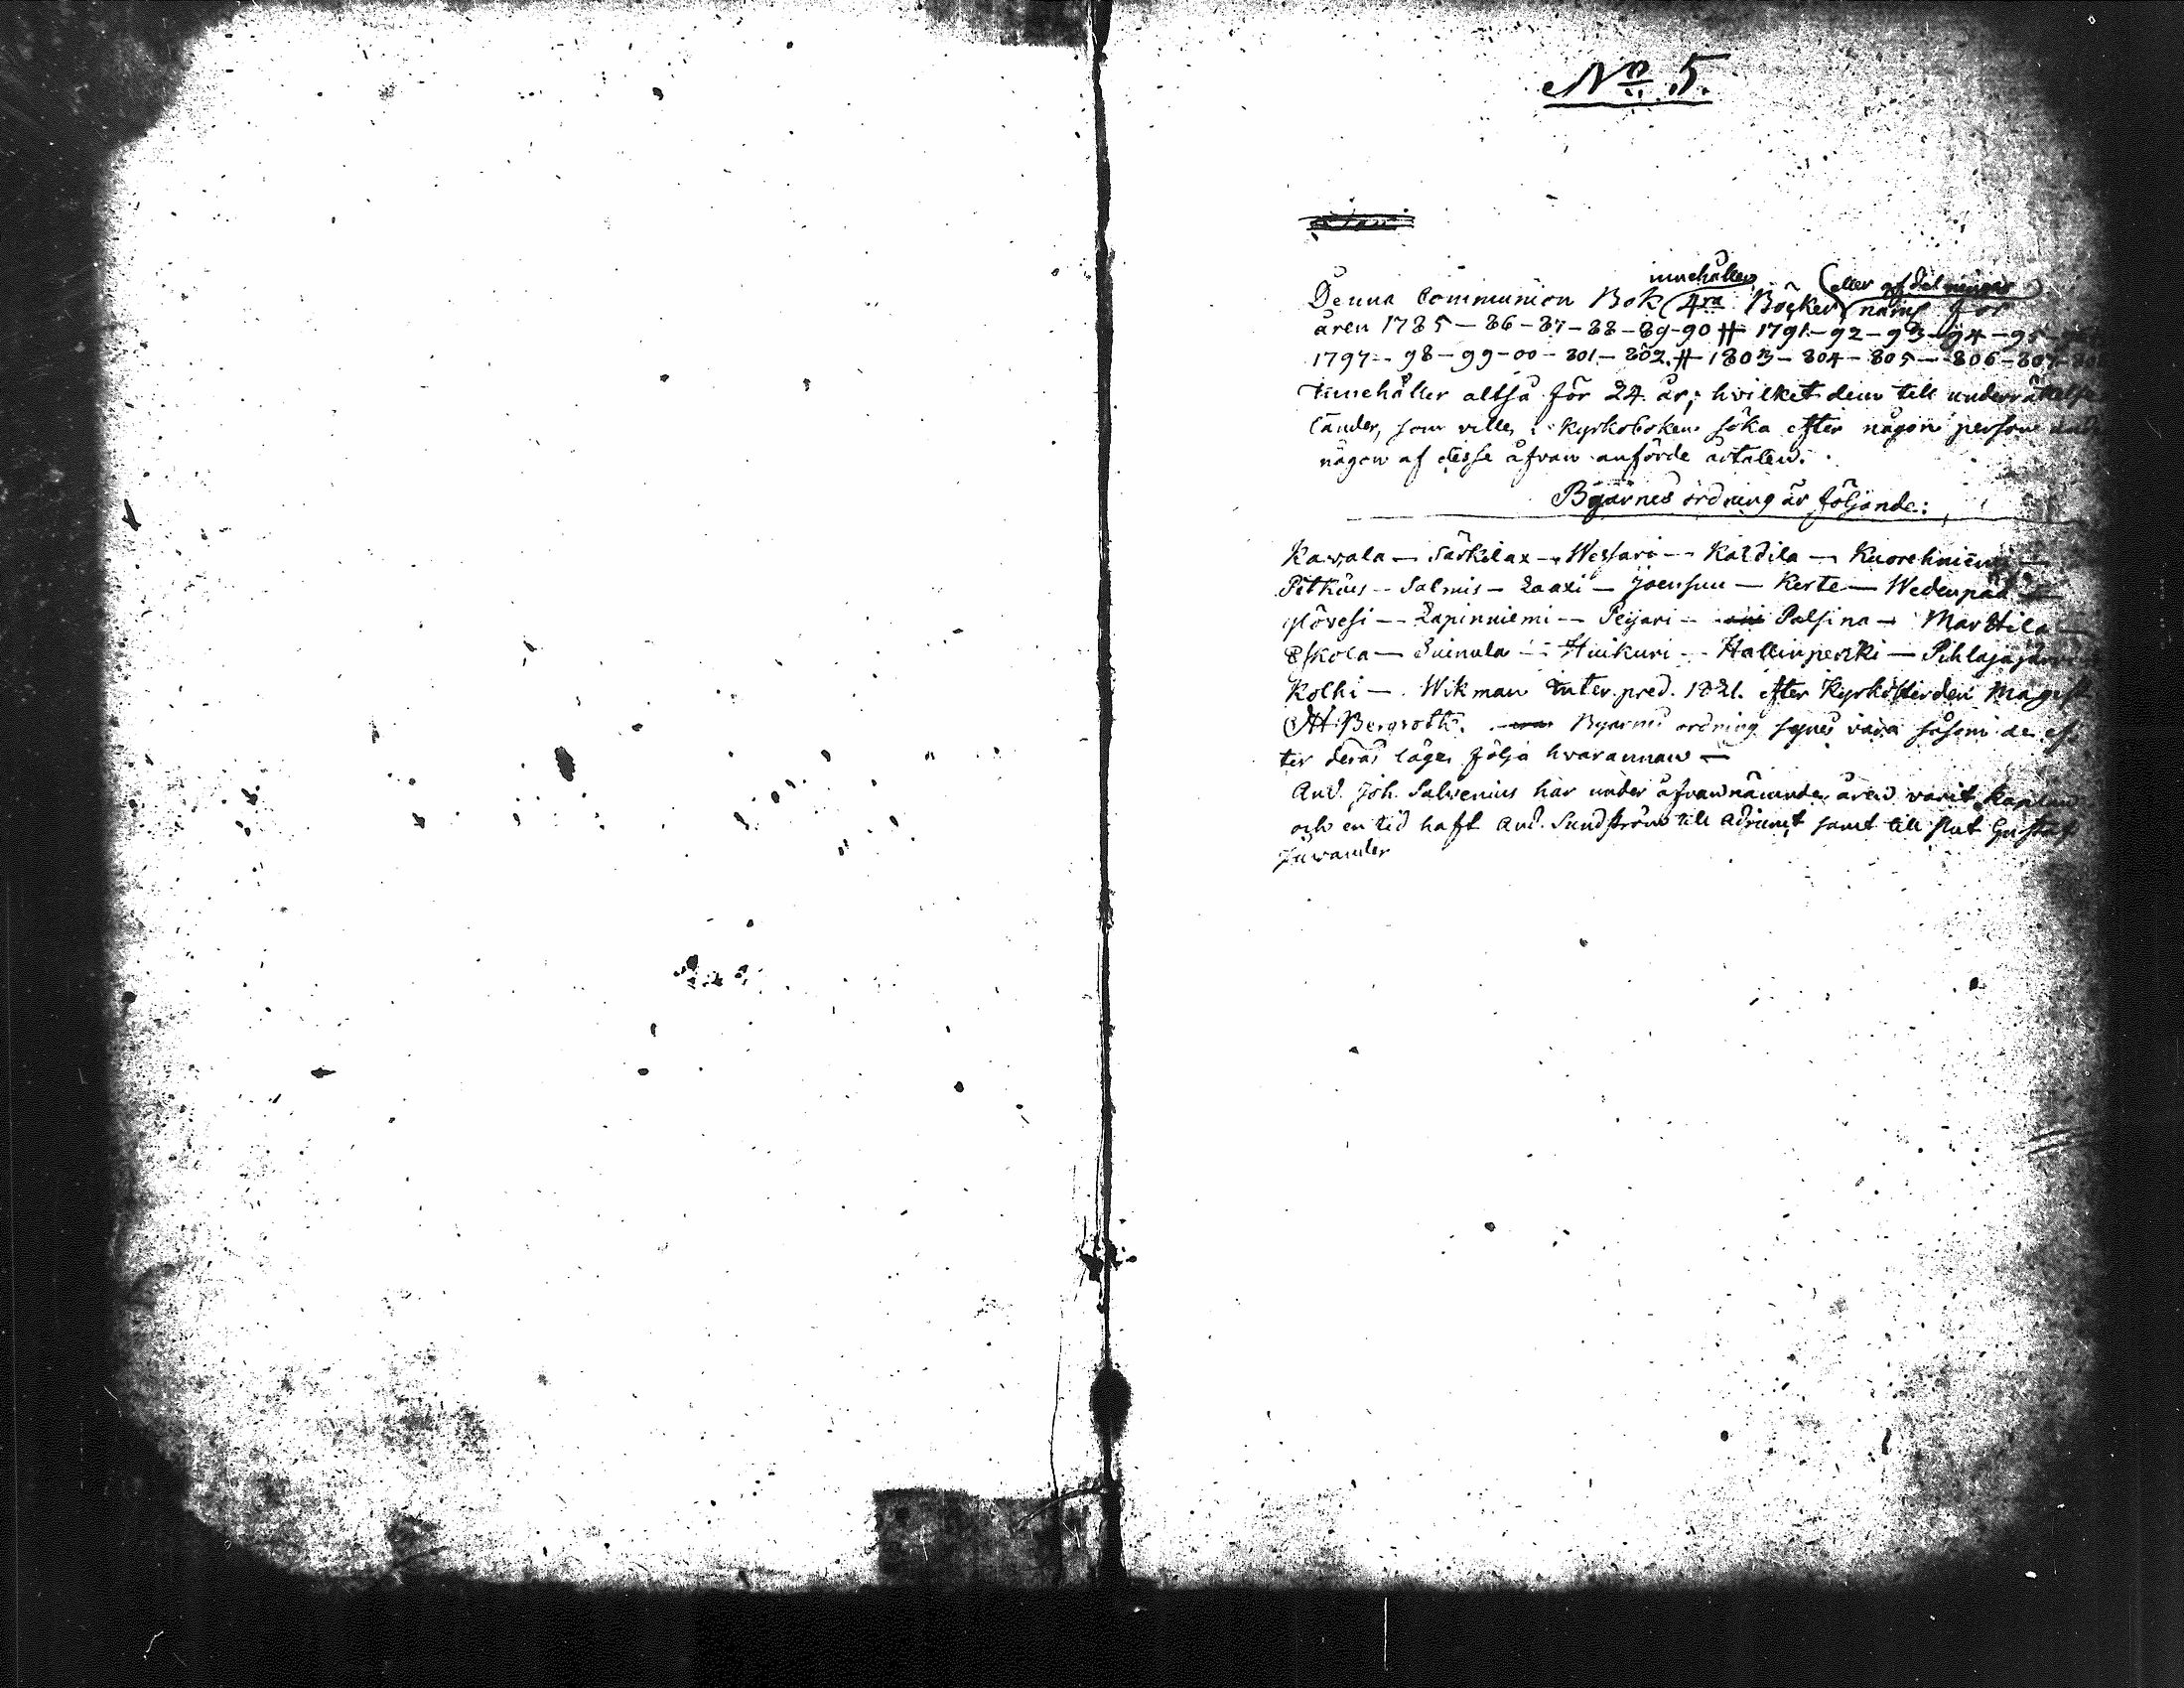 No 5.
innehåller (eller afdelningar)
Denna Communion Bok 4ra Böcker näml för
åren 1785 – 86 – 87 – 88 – 89 – 90 # 1791 – 92 – 93 – 94 – 95 –
1797 – 98 – 99 – 00 – 801 – 802. # 1803 – 804 – 805 – 806 – 807 – 808
innehåller altså för 24 år; hvilket dem till underrättelse
länder, som ville i Kyrkoboken söka efter någon person under
någon af desse åfvan anförde årtalen.
Byarnes ordning är följande:
Kawala – Särkilax – Wessari – Kaldila – Kuorehniemi –
Pitkäis – Salmis – Laaxi – Joensuu – Kerte – Wedenpää –
Ylövesi – Lapinniemi – Peijari – Palsina – Marttila –
Eskola – Suinula – Hiukuri – Hallinpenki – Pihlajajärvi
Kolki – . Wikman inter. pred. 1821. efter Kyrkoherden Magist
Bergroth. Byarnes ordning synes vara såsom de ef
ter deras läge följa hvarannan –
And. Joh. Salvenius har under åfvannämnde åren varit Kaplan
och en tid haft And. Sundström till adjunct samt till slut Gustaf